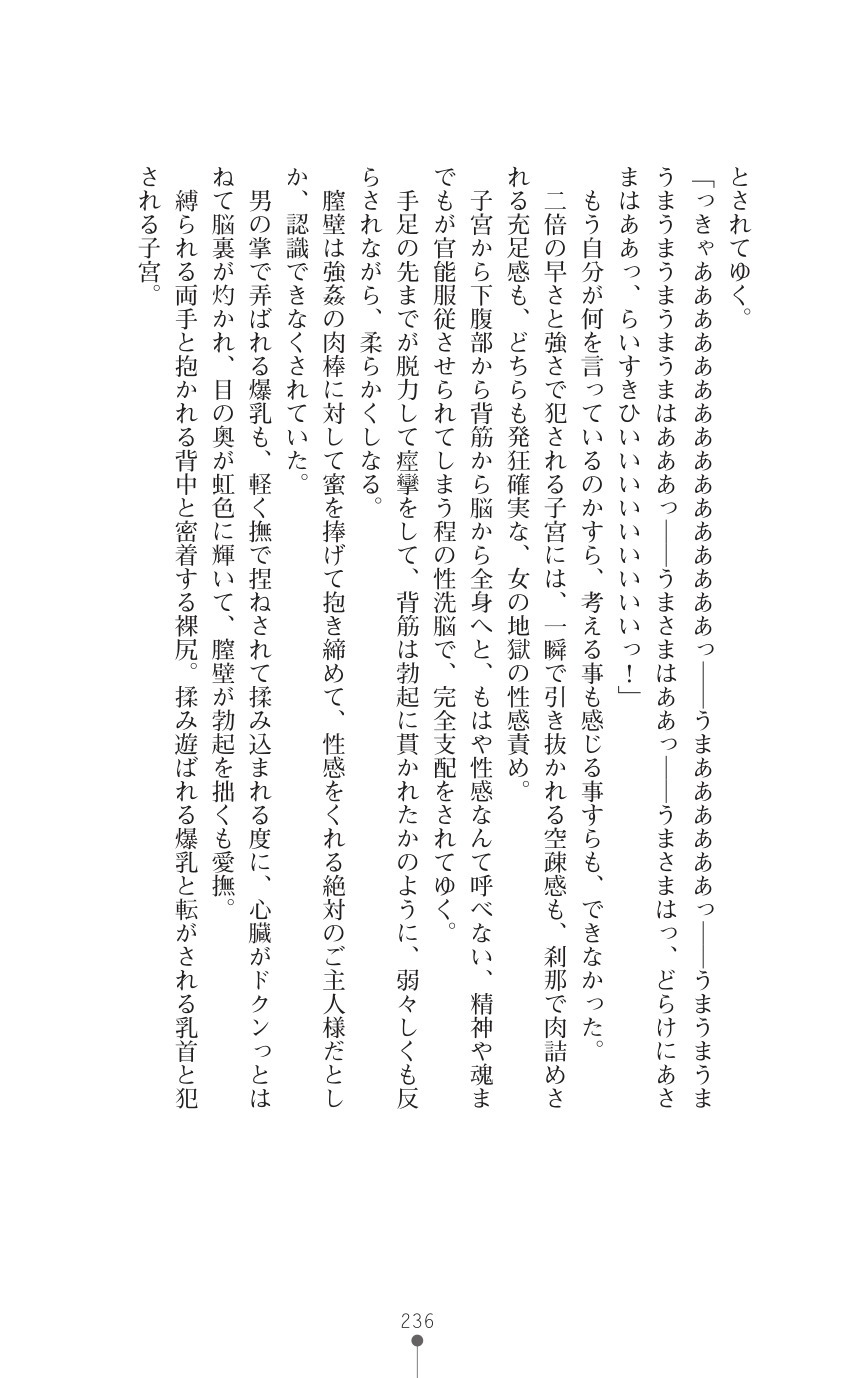 とされてゆく。
「っきゃああああああああああああああああっ――うまああああああっ――うまうまうま
うまうまうまうまうまはあああっ――うまさまはああっ――うまさまはっ、どらけにあさ
まはああっ、らいすきひいいいいいいいいいっ！」
もう自分が何を言っているのかすら、考える事も感じる事すらも、できなかった。
二倍の早さと強さで犯される子宮には、一瞬で引き抜かれる空疎感も、刹那で肉詰めさ
れる充足感も、どちらも発狂確実な、女の地獄の性感責め。
子宮から下腹部から背筋から脳から全身へと、もはや性感なんて呼べない、精神や魂ま
でもが官能服従させられてしまう程の性洗脳で、完全支配をされてゆく。
手足の先までが脱力して痙攣をして、背筋は勃起に貫かれたかのように、弱々しくも反
らされながら、柔らかくしなる。
膣壁は強姦の肉棒に対して蜜を捧げて抱き締めて、性感をくれる絶対のご主人様だとし
か、認識できなくされていた。
男の掌で弄ばれる爆乳も、軽く撫で捏ねされて揉み込まれる度に、心臓がドクンっとは
ねて脳裏が灼かれ、目の奥が虹色に輝いて、膣壁が勃起を拙くも愛撫。
縛られる両手と抱かれる背中と密着する裸尻。揉み遊ばれる爆乳と転がされる乳首と犯
される子宮。
236